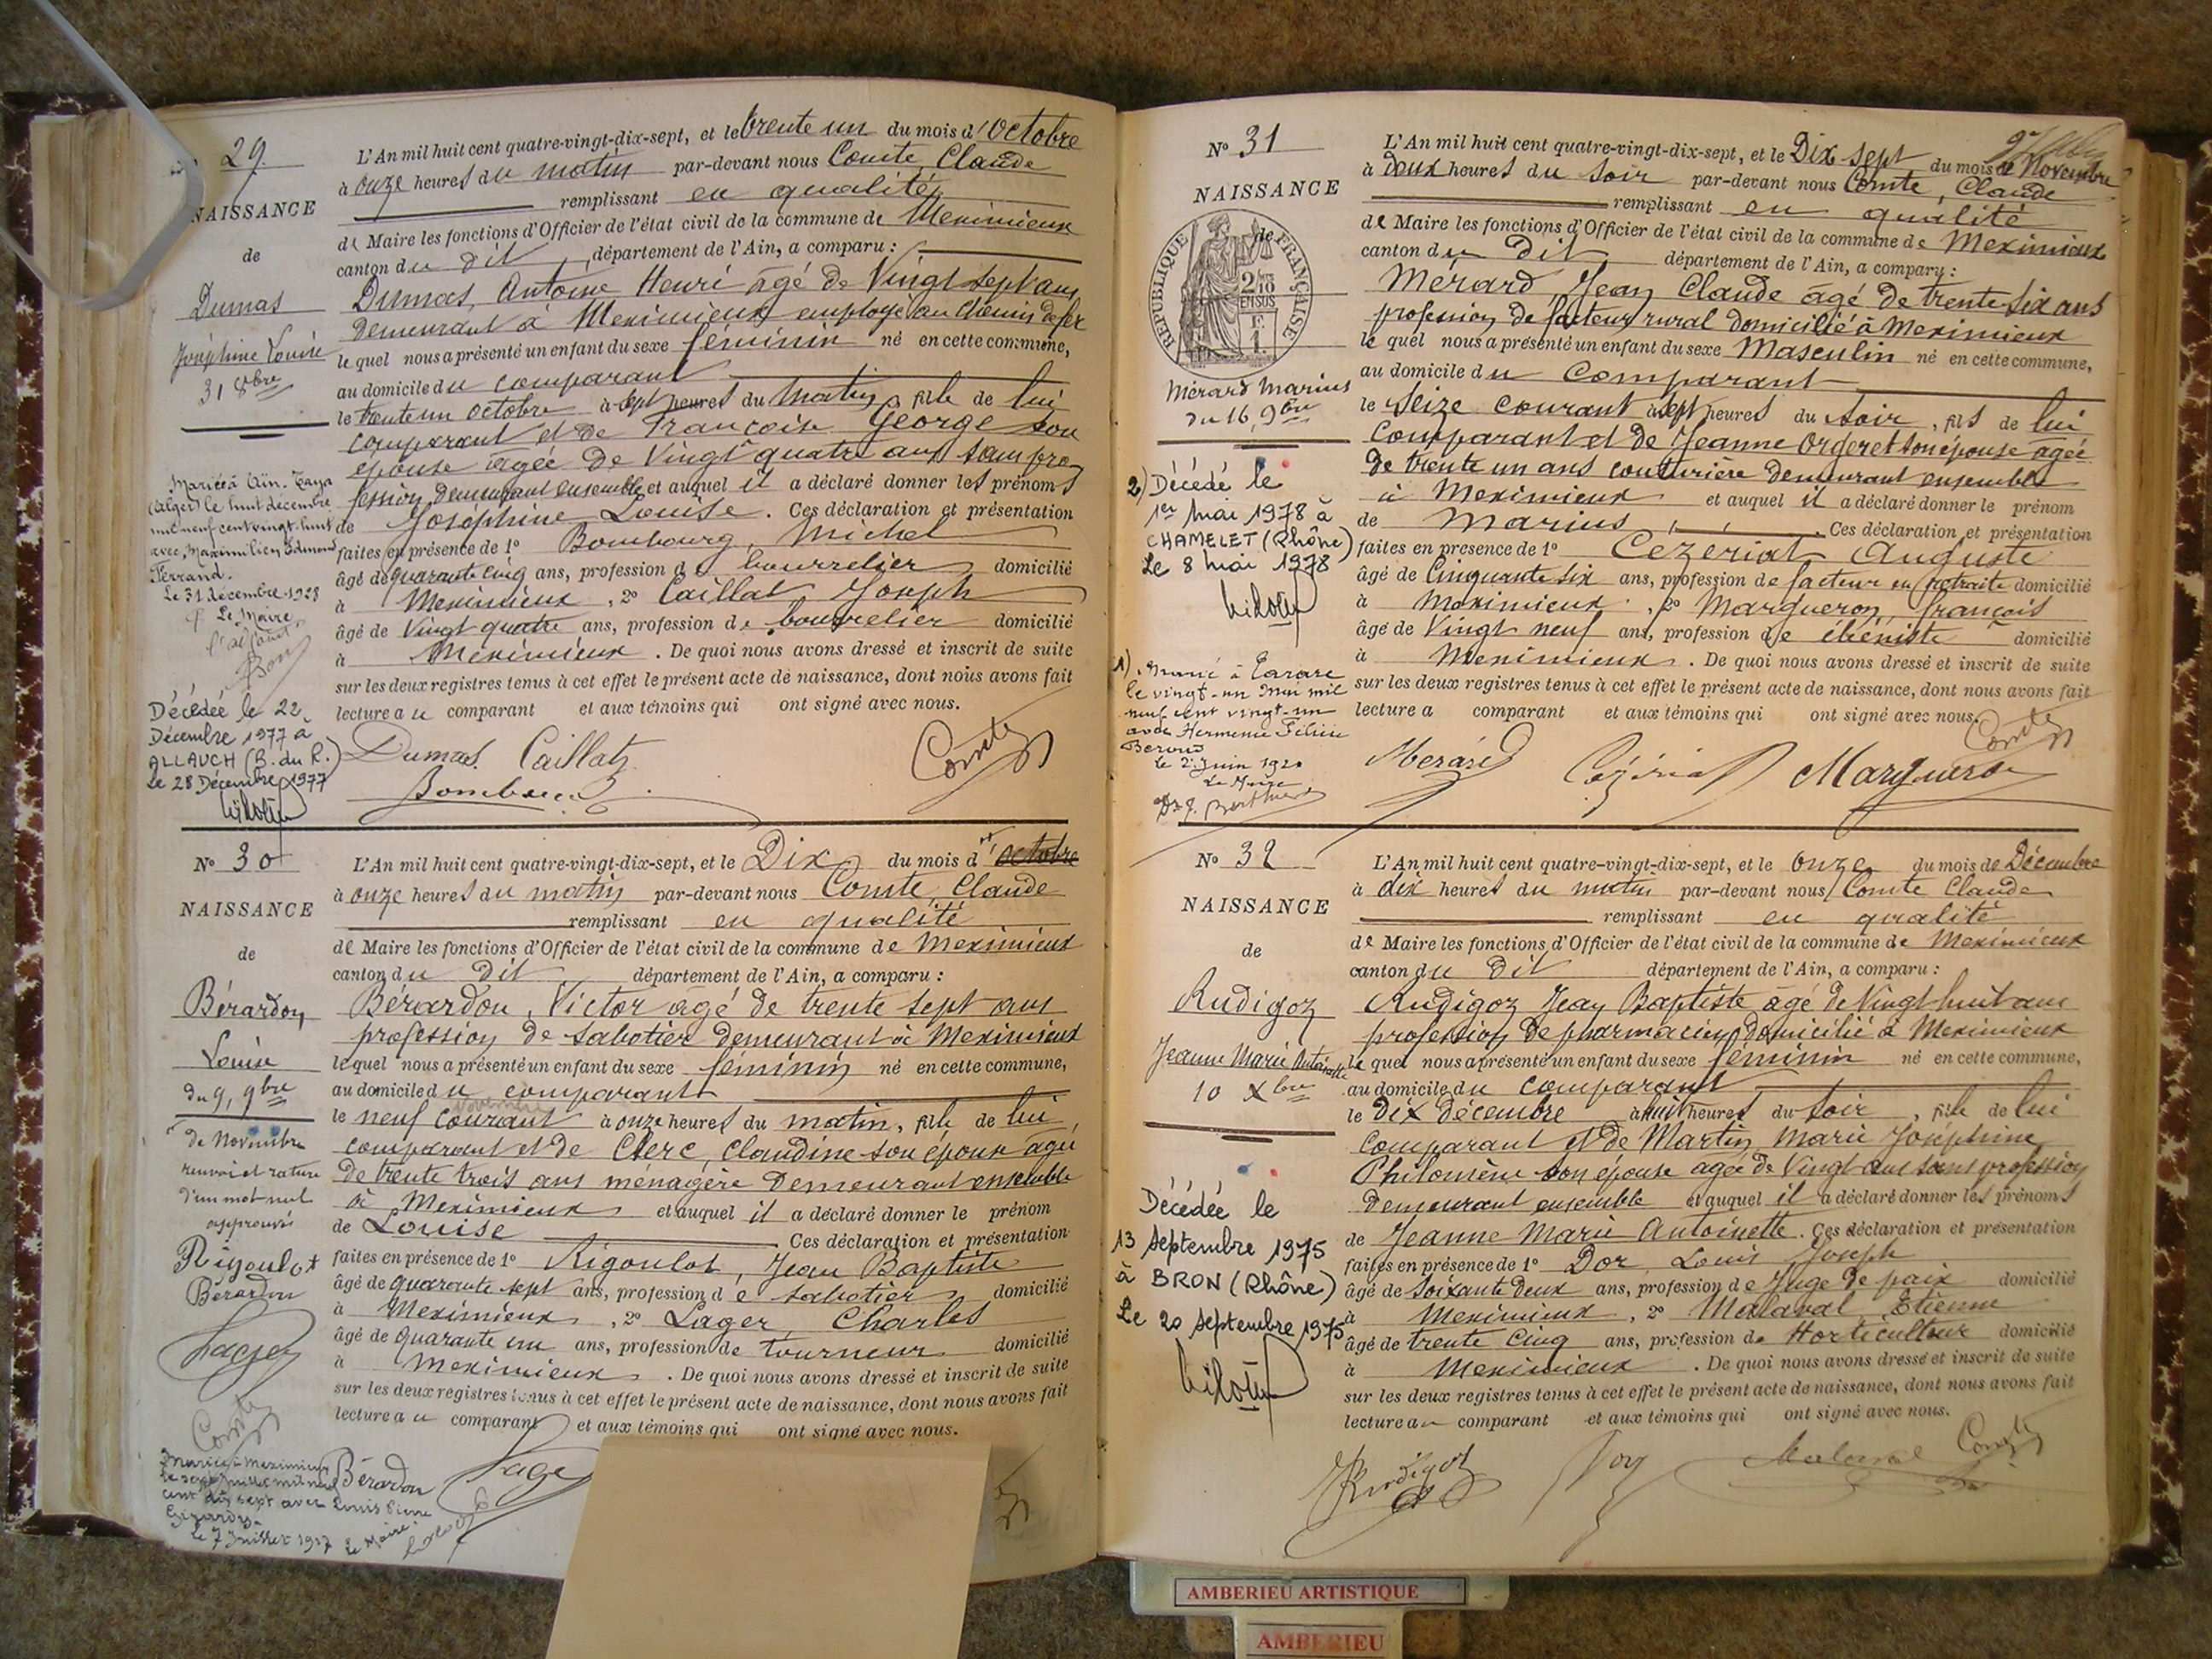 29
NAISSANCE
de
Dumas
Joséphine Louise
31 8bre
Mariée à Aïn-Taya
(Alger) le huit décembre
mil neuf cent vingt-huit
avec Maximilien Edmond
Ferrand.
Le 31 décembre 1928
Le Maire
Décédée le 22
Décembre 1977 à
ALLAUCH (B. du R.)
Le 28 Décembre 1977
L'An mil huit cent quatre-vingt-dix-sept, et le trente un du mois d'Octobre
à onze heures du matin par-devant nous Comte Claude
remplissant en qualité
de Maire les fonctions d'Officier de l'état civil de la commune de Meximieux
canton du dit, département de l'Ain, a comparu :
Dumas, Antoine Henri âgé de Vingt sept ans
demeurant à Meximieux employé au Chemin de fer
lequel nous a présenté un enfant du sexe féminin né en cette commune,
au domicile du comparant
le trente un octobre à sept heures du matin, fille de lui
comparant et de Françoise George son
épouse âgée de Vingt quatre ans sans pro-
fession, demeurant ensemble et auquel il a déclaré donner les prénoms
de Joséphine Louise. Ces déclaration et présentation
faites en présence de 1° Bombourg, Michel
âgé de quarante cinq ans, profession de bourrelier domicilié
à Meximieux, 2° Caillat Joseph
âgé de Vingt quatre ans, profession de bourrelier domicilié
à Meximieux. De quoi nous avons dressé et inscrit de suite
sur les deux registres tenus à cet effet le présent acte de naissance, dont nous avons fait
lecture au comparant et aux témoins qui ont signé avec nous.
Dumas Caillat Comte
N° 30
NAISSANCE
de
Bérardon
Louise
du 9, 9bre
de Novembre
renvoi et rature
d'un mot nul
approuvés
Rigoulot
Bérardon
Lager
Comte
Mariée à Meximieux
le sept juillet mil neuf
cent dix sept avec Louis Pierre
le 7 Juillet 1917 Le Maire
L'An mil huit cent quatre-vingt-dix-sept, et le Dix du mois d'Octobre
à onze heures du matin par-devant nous Comte Claude
remplissant en qualité
de Maire les fonctions d'Officier de l'état civil de la commune de Meximieux
canton du dit département de l'Ain, a comparu :
Bérardon, Victor âgé de trente sept ans
profession de sabotier demeurant à Meximieux
lequel nous a présenté un enfant du sexe féminin né en cette commune,
au domicile du comparant
novembre
le neuf courant à onze heures du matin, fille de lui
comparant et de Clerc, Claudine son épouse âgée
de trente trois ans ménagère demeurant ensemble
à Meximieux et auquel il a déclaré donner le prénom
de Louise Ces déclaration et présentation
faites en présence de 1° Rigoulot, Jean Baptiste
âgé de quarante sept ans, profession de sabotier domicilié
à Meximieux, 2° Lager, Charles
âgé de quarante un ans, profession de tourneur domicilié
à Meximieux. De quoi nous avons dressé et inscrit de suite
sur les deux registres tenus à cet effet le présent acte de naissance, dont nous avons fait
lecture au comparant et aux témoins qui ont signé avec nous.
Bérardon Lager
N° 31
NAISSANCE
de
RÉPUBLIQUE FRANÇAISE
2/10 EN SUS
Mérard Marius
du 16, 9bre
2) Décédé le
1er Mai 1978 à
CHAMELET (Rhône)
Le 8 Mai 1978
1). Marié à Tarare
le vingt-un Mai mil
neuf cent vingt-un
avec Herminie
Le Maire
L'An mil huit cent quatre-vingt-dix-sept, et le Dix sept du mois de Novembre
à Deux heures du Soir par-devant nous Comte, Claude
remplissant en qualité
de Maire les fonctions d'Officier de l'état civil de la commune de Meximieux
canton du Dit département de l'Ain, a comparu :
Mérard, Jean Claude âgé de trente six ans
profession de facteur rural domicilié à Meximieux
lequel nous a présenté un enfant du sexe Masculin né en cette commune,
au domicile du Comparant
le Seize courant à sept heures du soir, fils de lui
Comparant et de Jeanne Orgeret son épouse âgée
de trente un ans couturière demeurant ensemble
à Meximieux et auquel il a déclaré donner le prénom
de Marius, Ces déclaration et présentation
faites en présence de 1° Cezeriat Auguste
âgé de Cinquante six ans, profession de facteur en retraite domicilié
à Meximieux, 2° Margueron, françois
âgé de Vingt neuf ans, profession de ébéniste domicilié
à Meximieux. De quoi nous avons dressé et inscrit de suite
sur les deux registres tenus à cet effet le présent acte de naissance, dont nous avons fait
lecture a comparant et aux témoins qui ont signé avec nous.
Comte
Merard Cezeriat Margueron
N° 32
NAISSANCE
de
Rudigoz
Jeanne Marie Antoinette
10 Xbre
Décédée le
13 Septembre 1975
à BRON (Rhône)
Le 20 Septembre 1975
L'An mil huit cent quatre-vingt-dix-sept, et le onze du mois de Décembre
à dix heures du matin par-devant nous Comte Claude
remplissant en qualité
de Maire les fonctions d'Officier de l'état civil de la commune de Meximieux
canton du Dit département de l'Ain, a comparu :
Rudigoz Jean Baptiste âgé de Vingt huit ans
profession de pharmacien domicilié à Meximieux
lequel nous a présenté un enfant du sexe féminin né en cette commune,
au domicile du comparant
le Dix décembre à huit heures du soir, fille de lui
Comparant et de Martin Marie Joséphine
Philomène son épouse âgée de Vingt ans sans profession
demeurant ensemble et auquel il a déclaré donner les prénoms
de Jeanne Marie Antoinette. Ces déclaration et présentation
faites en présence de 1° Dor, Louis Joseph
âgé de Soixante Deux ans, profession de Juge de paix domicilié
à Meximieux, 2° Malaval Etienne
âgé de trente cinq ans, profession de Horticulteur domicilié
à Meximieux. De quoi nous avons dressé et inscrit de suite
sur les deux registres tenus à cet effet le présent acte de naissance, dont nous avons fait
lecture au comparant et aux témoins qui ont signé avec nous.
Rudigoz Dor Malaval Comte
AMBERIEU ARTISTIQUE
AMBERIEU